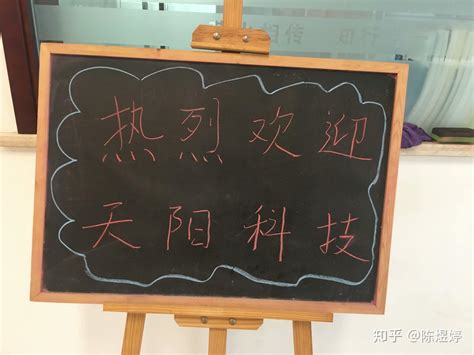 相传
热烈欢迎
天阳科技
知乎 @陈煜婷